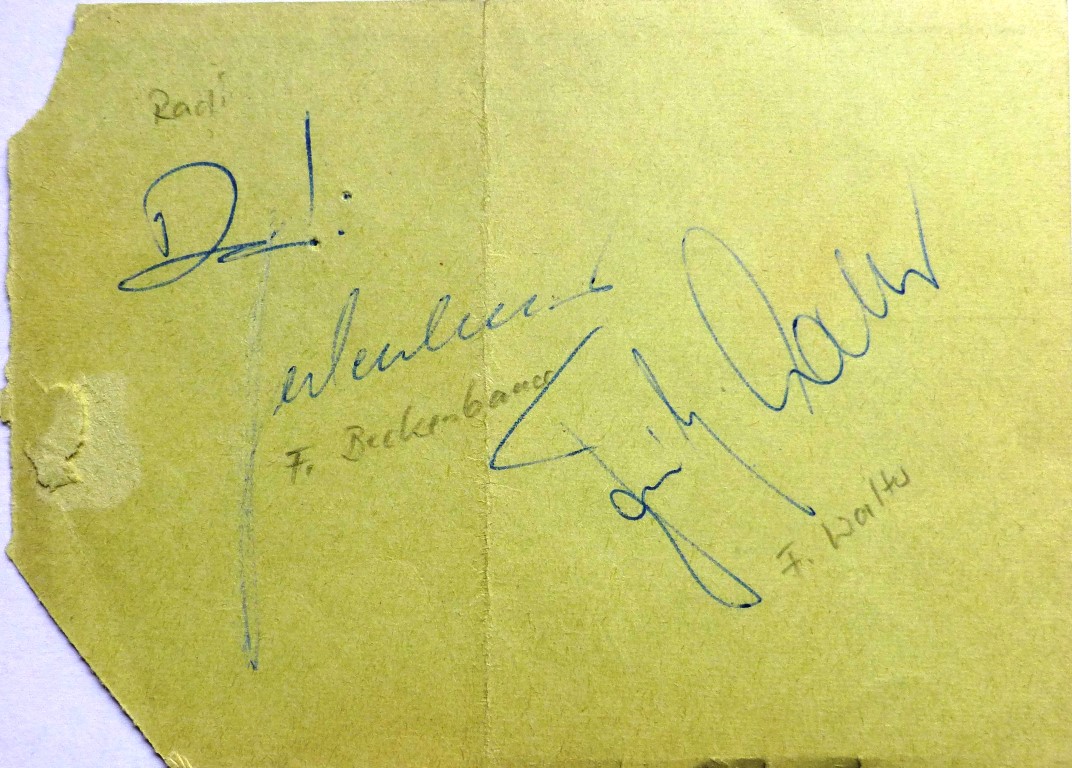 Radi
Radi
Beckenbauer
F. Beckenbauer
Fritz Walter
F. Walter